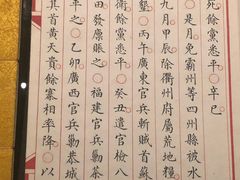 死餘黨悉平〇辛巳
〇是月免霸州等四州縣被水
九月甲辰除衢州府屬荒地糧
墾〇丙午廣東官兵斬賊首蘇
衛餘黨悉平〇癸丑遣官檢八
田發廩賑之〇福建官兵勦
平之〇乙卯廣西官兵勦恭城
其首黃天貴餘寨相率降〇以